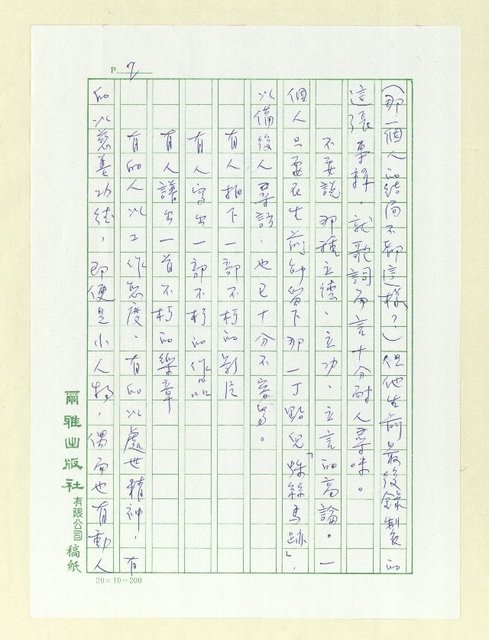 P 7
(那一個人的結局不都這樣？) 但他生前最後錄製的
這張專輯，就歌詞而言十分耐人尋味。
不要說那種立德、立功、立言的高論。一
個人只要在生前能留下那一丁點兒「蛛絲馬跡」，
以備後人尋訪，也已十分不容易。
有人拍下一部不朽的影片
有人寫出一部不朽的作品
有人譜出一首不朽的樂章
有的人以工作態度，有的以處世精神，有
的以慈善功德，即便是小人物，偶而也有動人
爾雅出版社有限公司稿紙
20×10=200